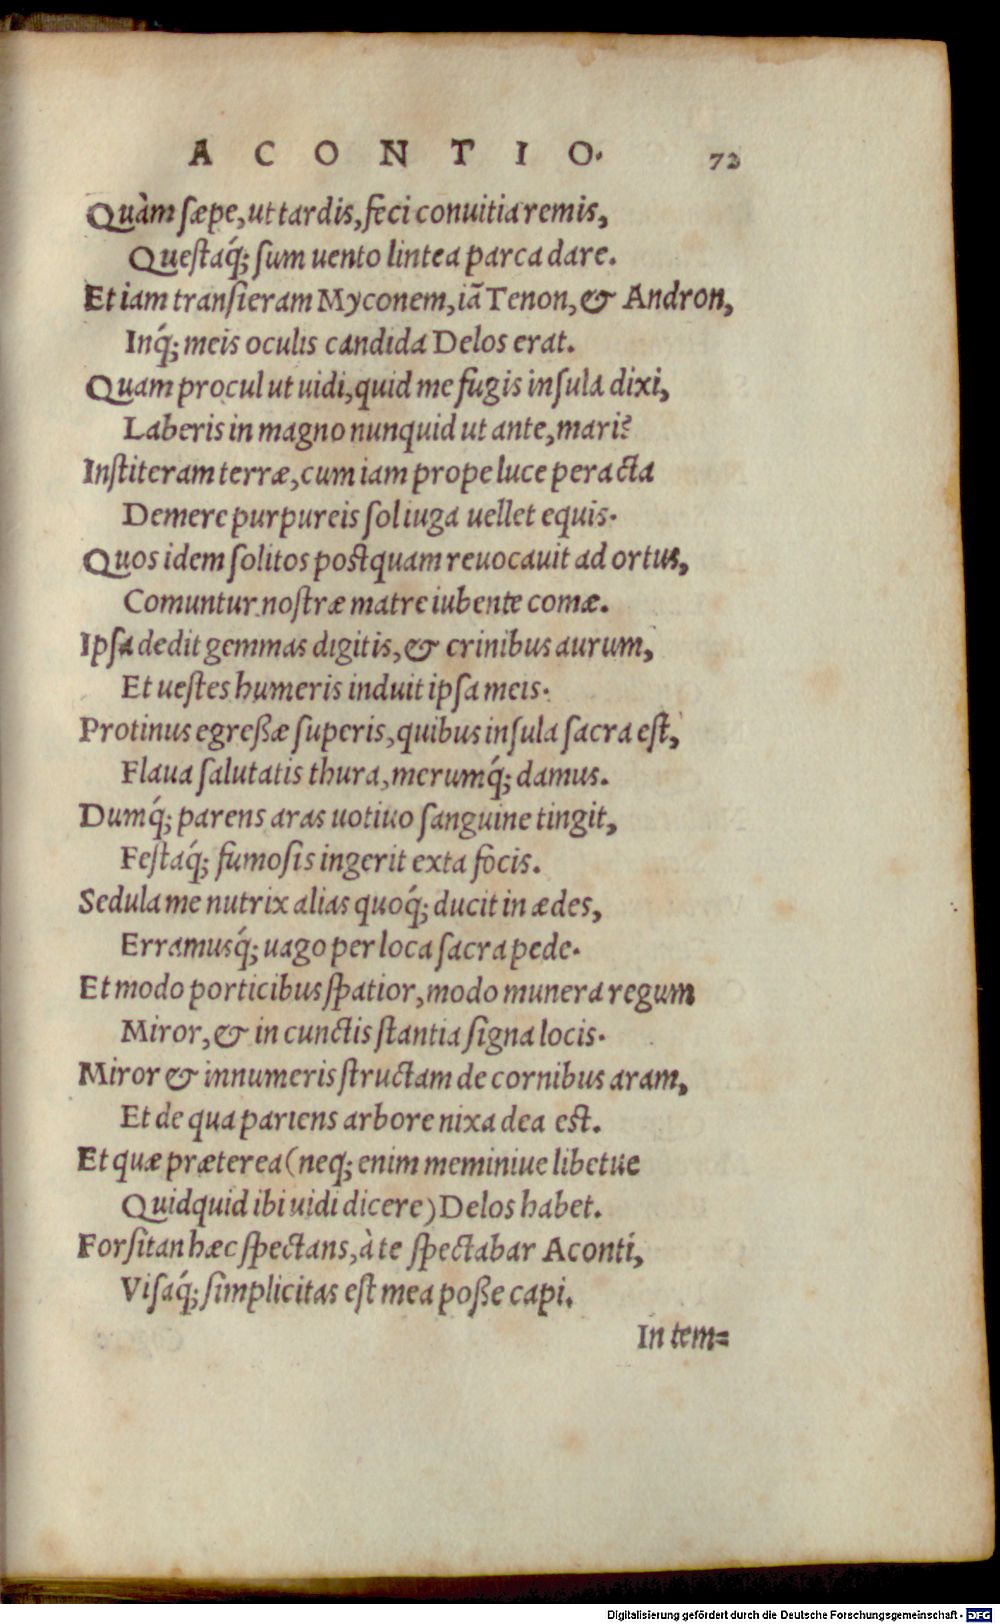 A C O N T I O. 72
Quàm sæpe, ut tardis, feci conuitia remis,
Questaq́; sum uento lintea parca dare.
Et iam transieram Myconem, iã Tenon, & Andron,
Inq́; meis oculis candida Delos erat.
Quam procul ut uidi, quid me fugis insula dixi,
Laberis in magno nunquid ut ante, mari?
Institeram terræ, cum iam prope luce peracta
Demere purpureis sol iuga uellet equis.
Quos idem solitos postquam reuocauit ad ortus,
Comuntur nostræ matre iubente comæ.
Ipsa dedit gemmas digitis, & crinibus aurum,
Et uestes humeris induit ipsa meis.
Protinus egreßæ superis, quibus insula sacra est,
Flaua salutatis thura, merumq́; damus.
Dumq́; parens aras uotiuo sanguine tingit,
Festaq́; fumosis ingerit exta focis.
Sedula me nutrix alias quoq́; ducit in ædes,
Erramusq́; uago per loca sacra pede.
Et modo porticibus spatior, modo munera regum
Miror, & in cunctis stantia signa locis.
Miror & innumeris structam de cornibus aram,
Et de qua pariens arbore nixa dea est.
Et quæ præterea (neq; enim meminiue libetue
Quidquid ibi uidi dicere) Delos habet.
Forsitan hæc spectans, à te spectabar Aconti,
Visaq́; simplicitas est mea poße capi.
In tem=
Digitalisierung gefördert durch die Deutsche Forschungsgemeinschaft - DFG